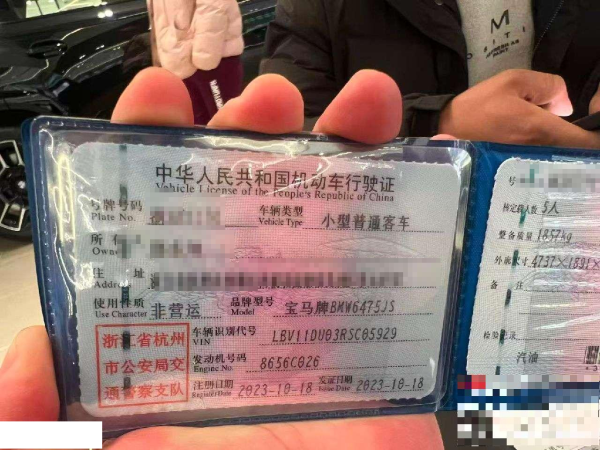 中华人民共和国机动车行驶证
Vehicle License of the People's Republic of China
号牌号码
Plate No.
车辆类型
Vehicle Type
小型普通客车
所
Own
住 址
Address
使用性质
Use Character
非营运
品牌型号
Model
宝马牌BMW6475JS
浙江省杭州
市公安局交
通警察支队
车辆识别代号
VIN
LBV11DU03RSC05929
发动机号码
Engine No.
8656C026
注册日期
Register Date
2023-10-18
发证日期
Issue Date
2023-10-18
号
核定载人数 5人
整备质量 1857kg
外廓尺寸 4737×1891×
备 注
检验记录
汽油
M